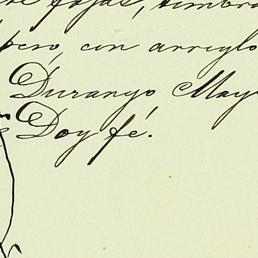 fojas, timbra
pero, con arreglo
Durango May
Doy fé.